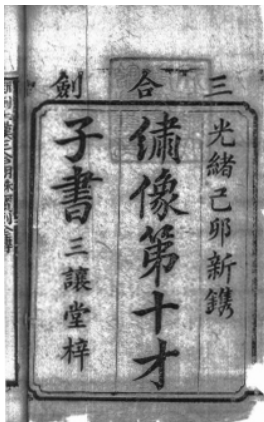 三合劍
光緒己卯新鐫
繡像第十才
子書 三讓堂梓